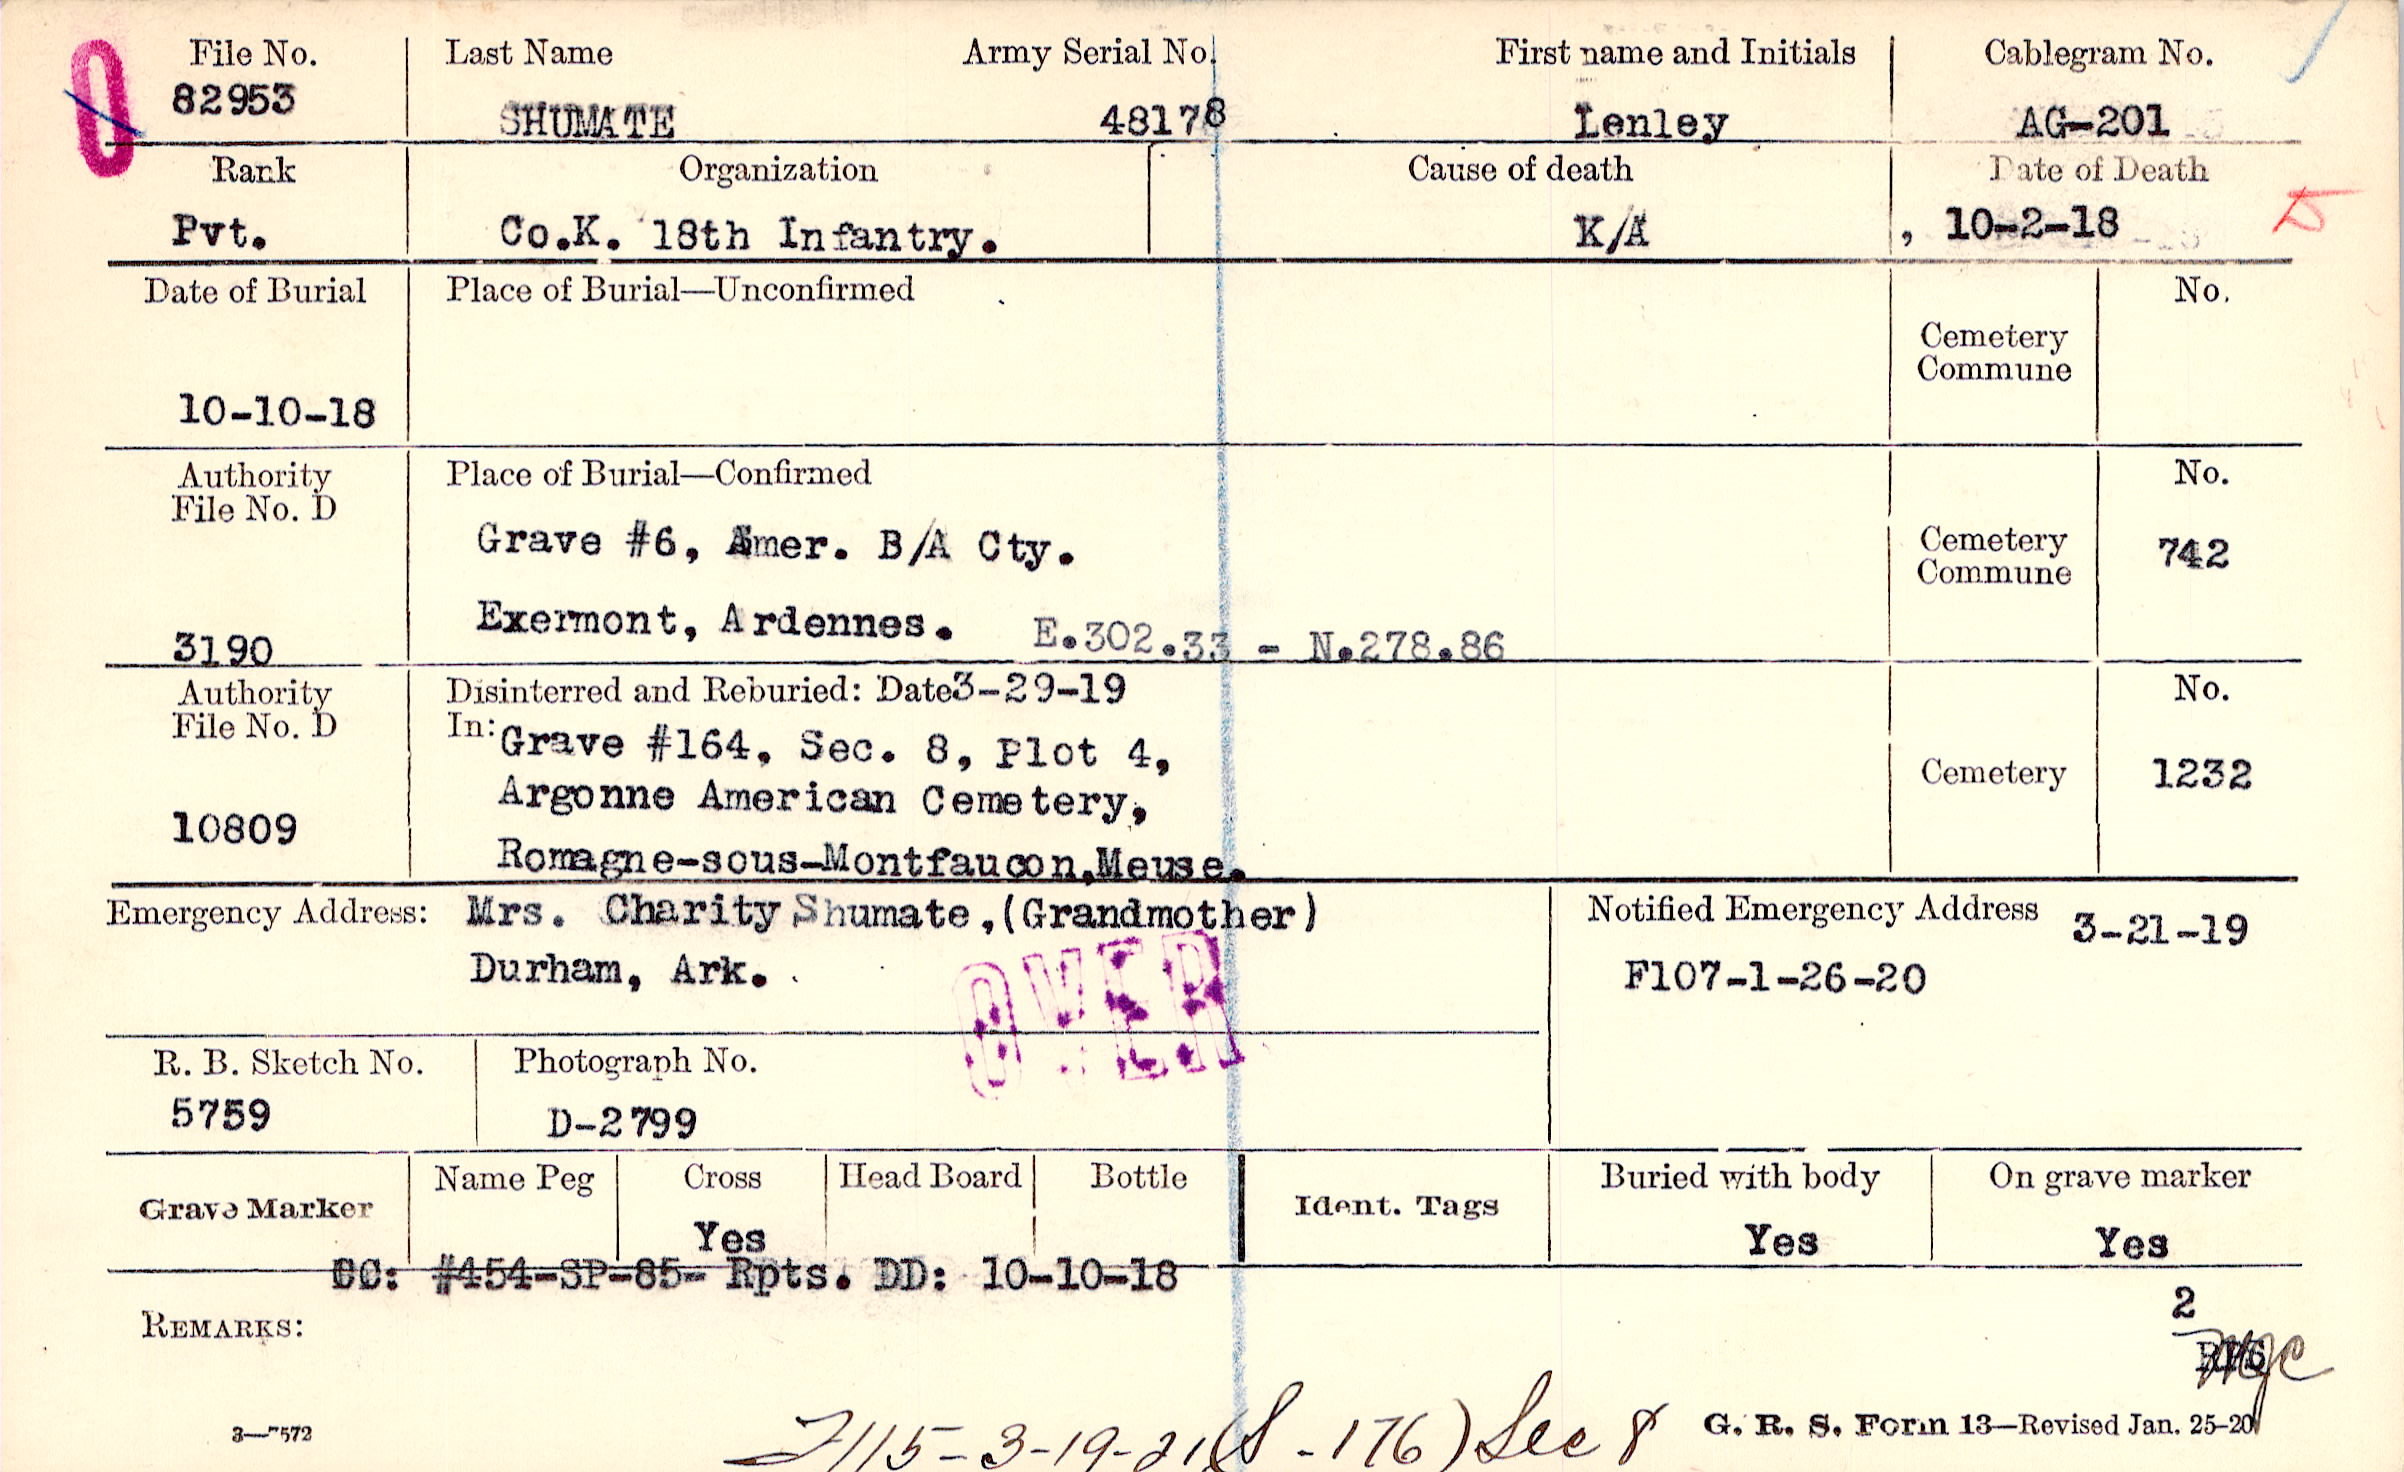 File No. Last Name Army Serial No. First name and Initials Cablegram No.
82953 SHUMATE 48178 Lenley AG-201
Rank Organization Cause of death Date of Death
Pvt. Co.K. 18th Infantry. K/A , 10-2-18
Date of Burial Place of Burial—Unconfirmed No.
Cemetery
Commune
10-10-18
Authority Place of Burial—Confirmed No.
File No. D
Grave #6, Amer. B/A Cty. Cemetery 742
Commune
Exermont, Ardennes. E.302.33 - N.278.86
3190
Authority Disinterred and Reburied: Date 3-29-19 No.
File No. D In: Grave #164, Sec. 8, Plot 4,
Argonne American Cemetery, Cemetery 1232
10809
Romagne-sous-Montfaucon,Meuse.
Emergency Address: Mrs. Charity Shumate,(Grandmother) Notified Emergency Address 3-21-19
Durham, Ark. F107-1-26-20
OVER
R. B. Sketch No. Photograph No.
5759 D-2799
Grave Marker Name Peg Cross Head Board Bottle Ident. Tags Buried with body On grave marker
Yes Yes Yes
CC: #454-SP-85- Rpts. DD: 10-10-18
2
REMARKS:
3—7572 G. R. S. Form 13—Revised Jan. 25-20
3-19-21 (S-176) Sec 8